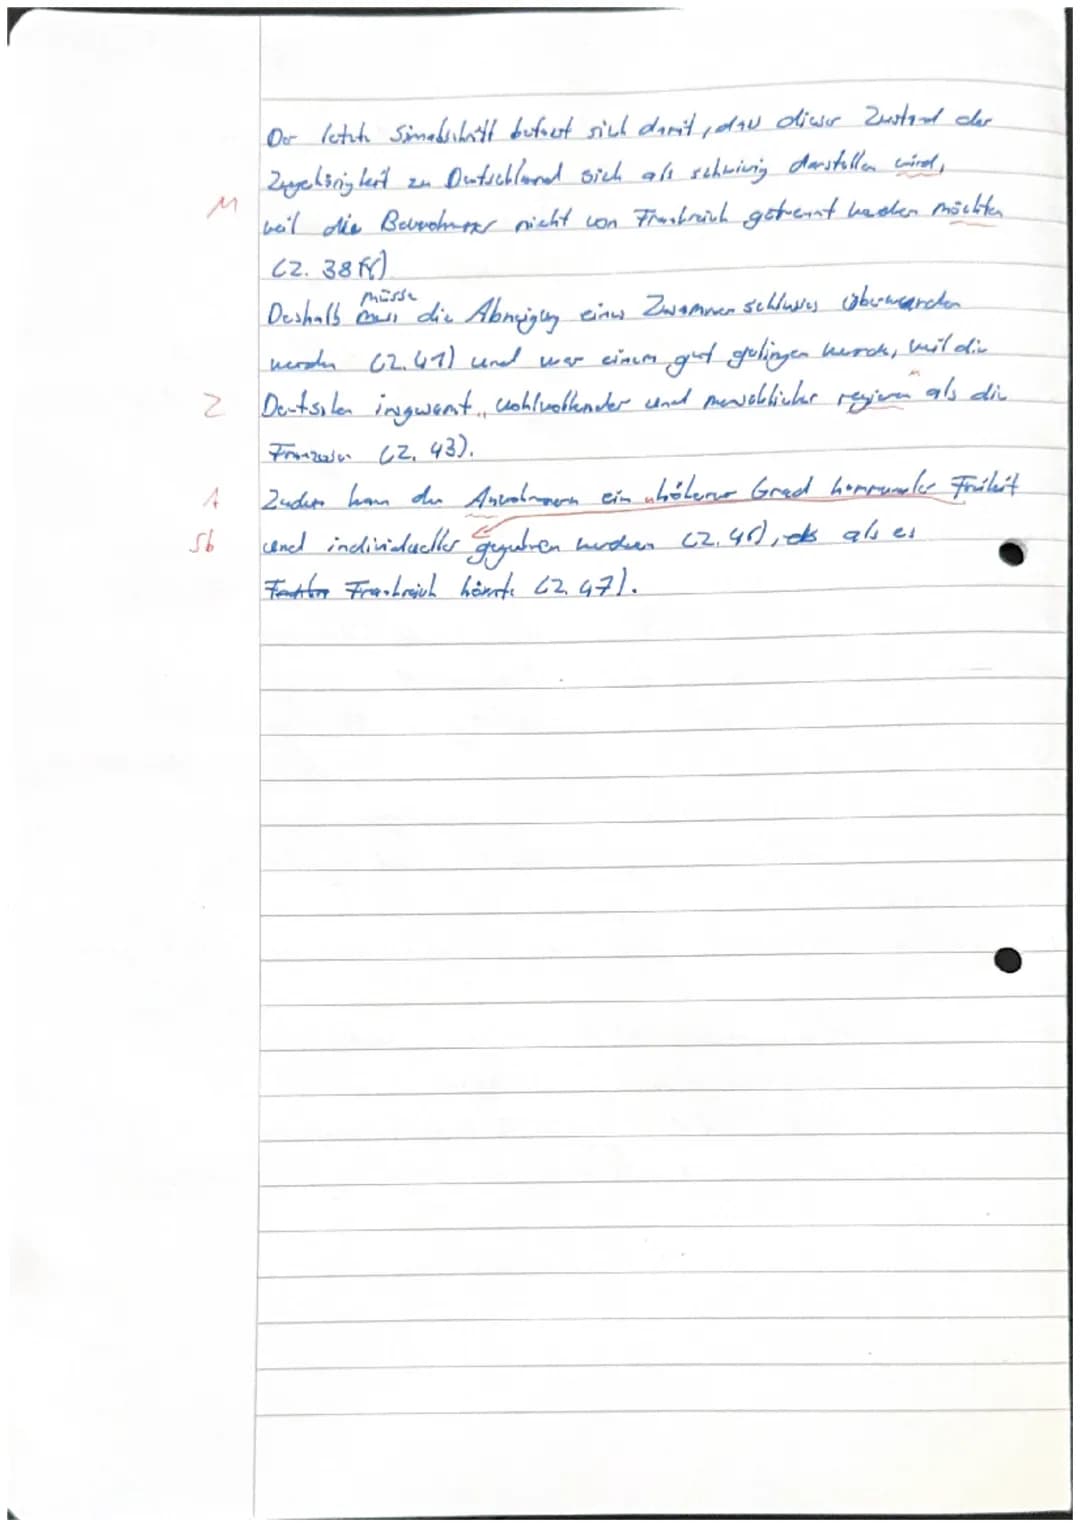 Der letzte Sinnabschnitt befasst sich damit, dass dieser Zustand der
Zugehörigkeit zu Deutschland sich als schwierig darstellen wird,
M
weil die Bewohner nicht von Frankreich getrennt werden möchten
(Z. 38 ff)
müsse
Deshalb muss die Abneigung eines Zusammenschlusses überwarden
werden (Z. 41) und war einem gut gelingen werde, weil die
Z Deutschen insgesamt wohlwollender und menschlicher regieren als die
Franzosen (Z. 43).
A Zudem kann den Anwohnern ein höherer Grad kommunaler Freiheit
Sb und individueller gegeben werden (Z. 46), als es
Frankreich könnte (Z. 47).